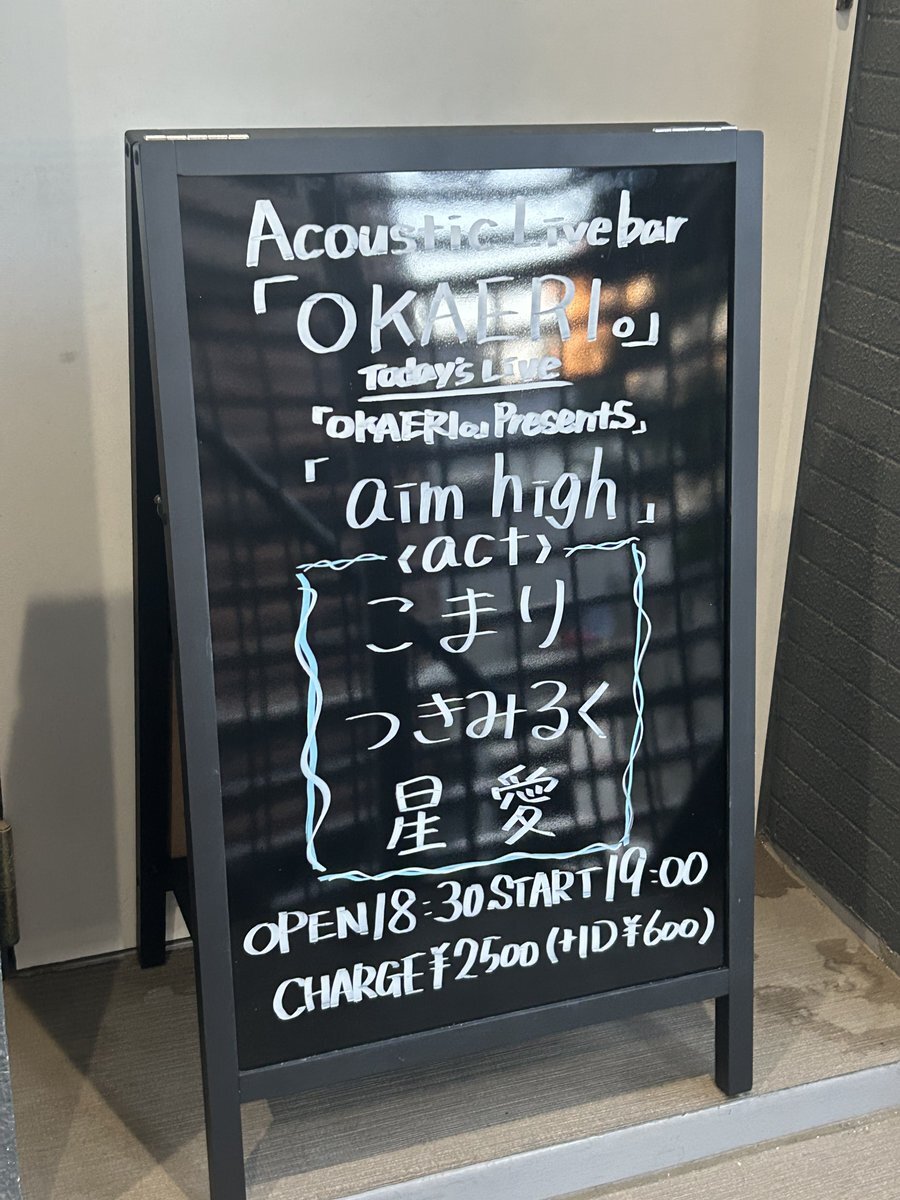 Acoustic Live bar
「OKAERI。」
Today's Live
「OKAERI。」Presents
「aim high」
<act>
こまり
つきみるく
星 愛
OPEN/18:30 START/19:00
CHARGE ¥2500 (+1D ¥600)